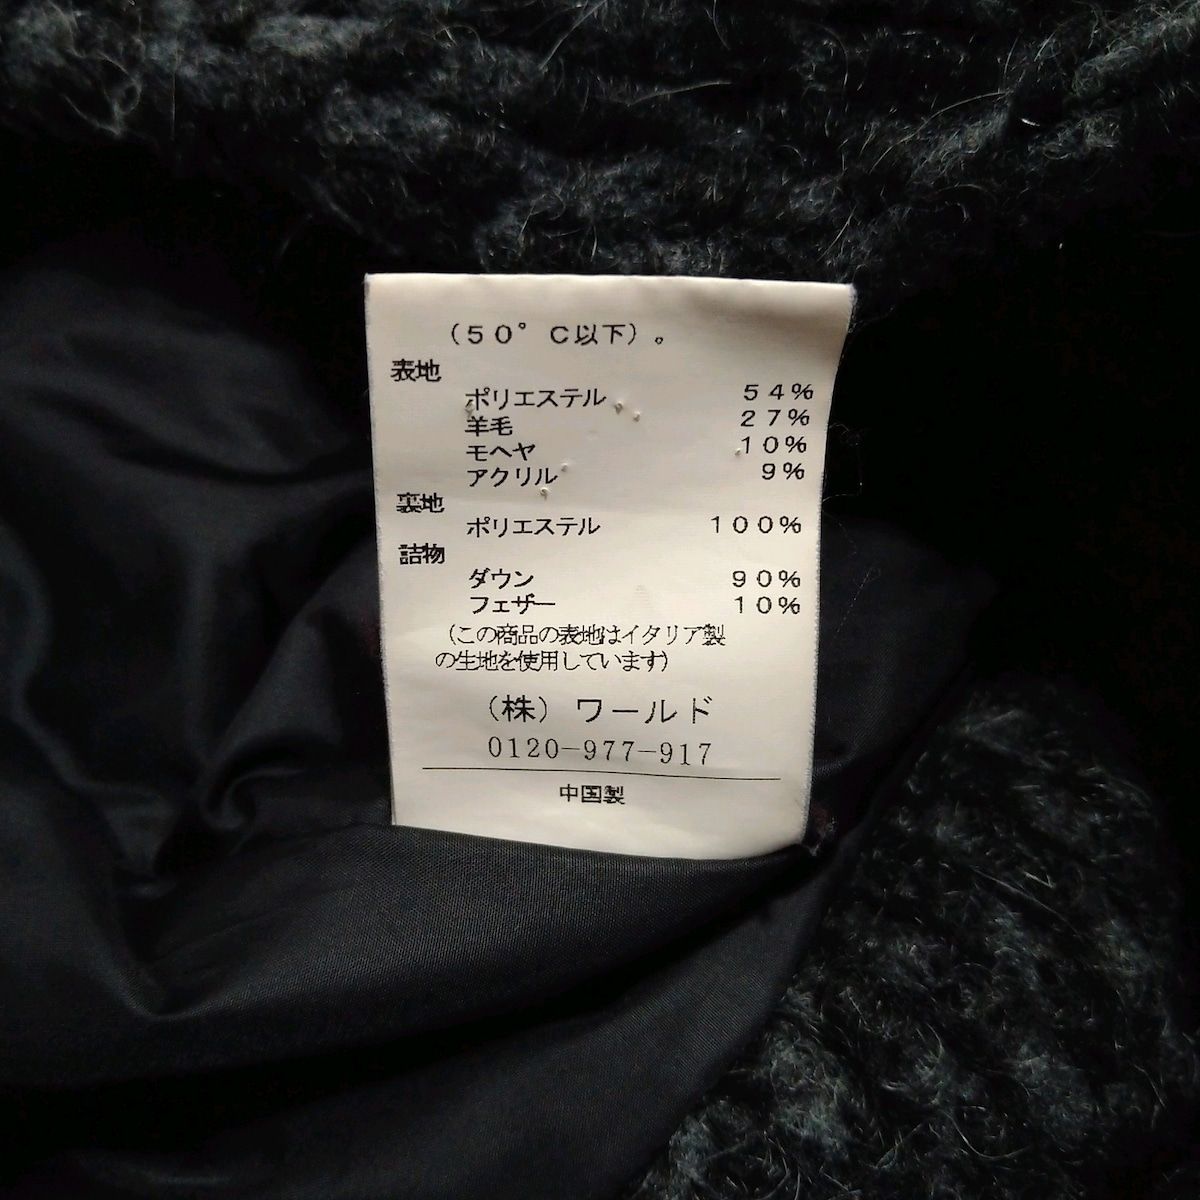 （５０°Ｃ以下）。
表地
ポリエステル ５４％
羊毛 ２７％
モヘヤ １０％
アクリル ９％
裏地
ポリエステル １００％
詰物
ダウン ９０％
フェザー １０％
（この商品の表地はイタリア製
の生地を使用しています）
（株）ワールド
0120-977-917
中国製